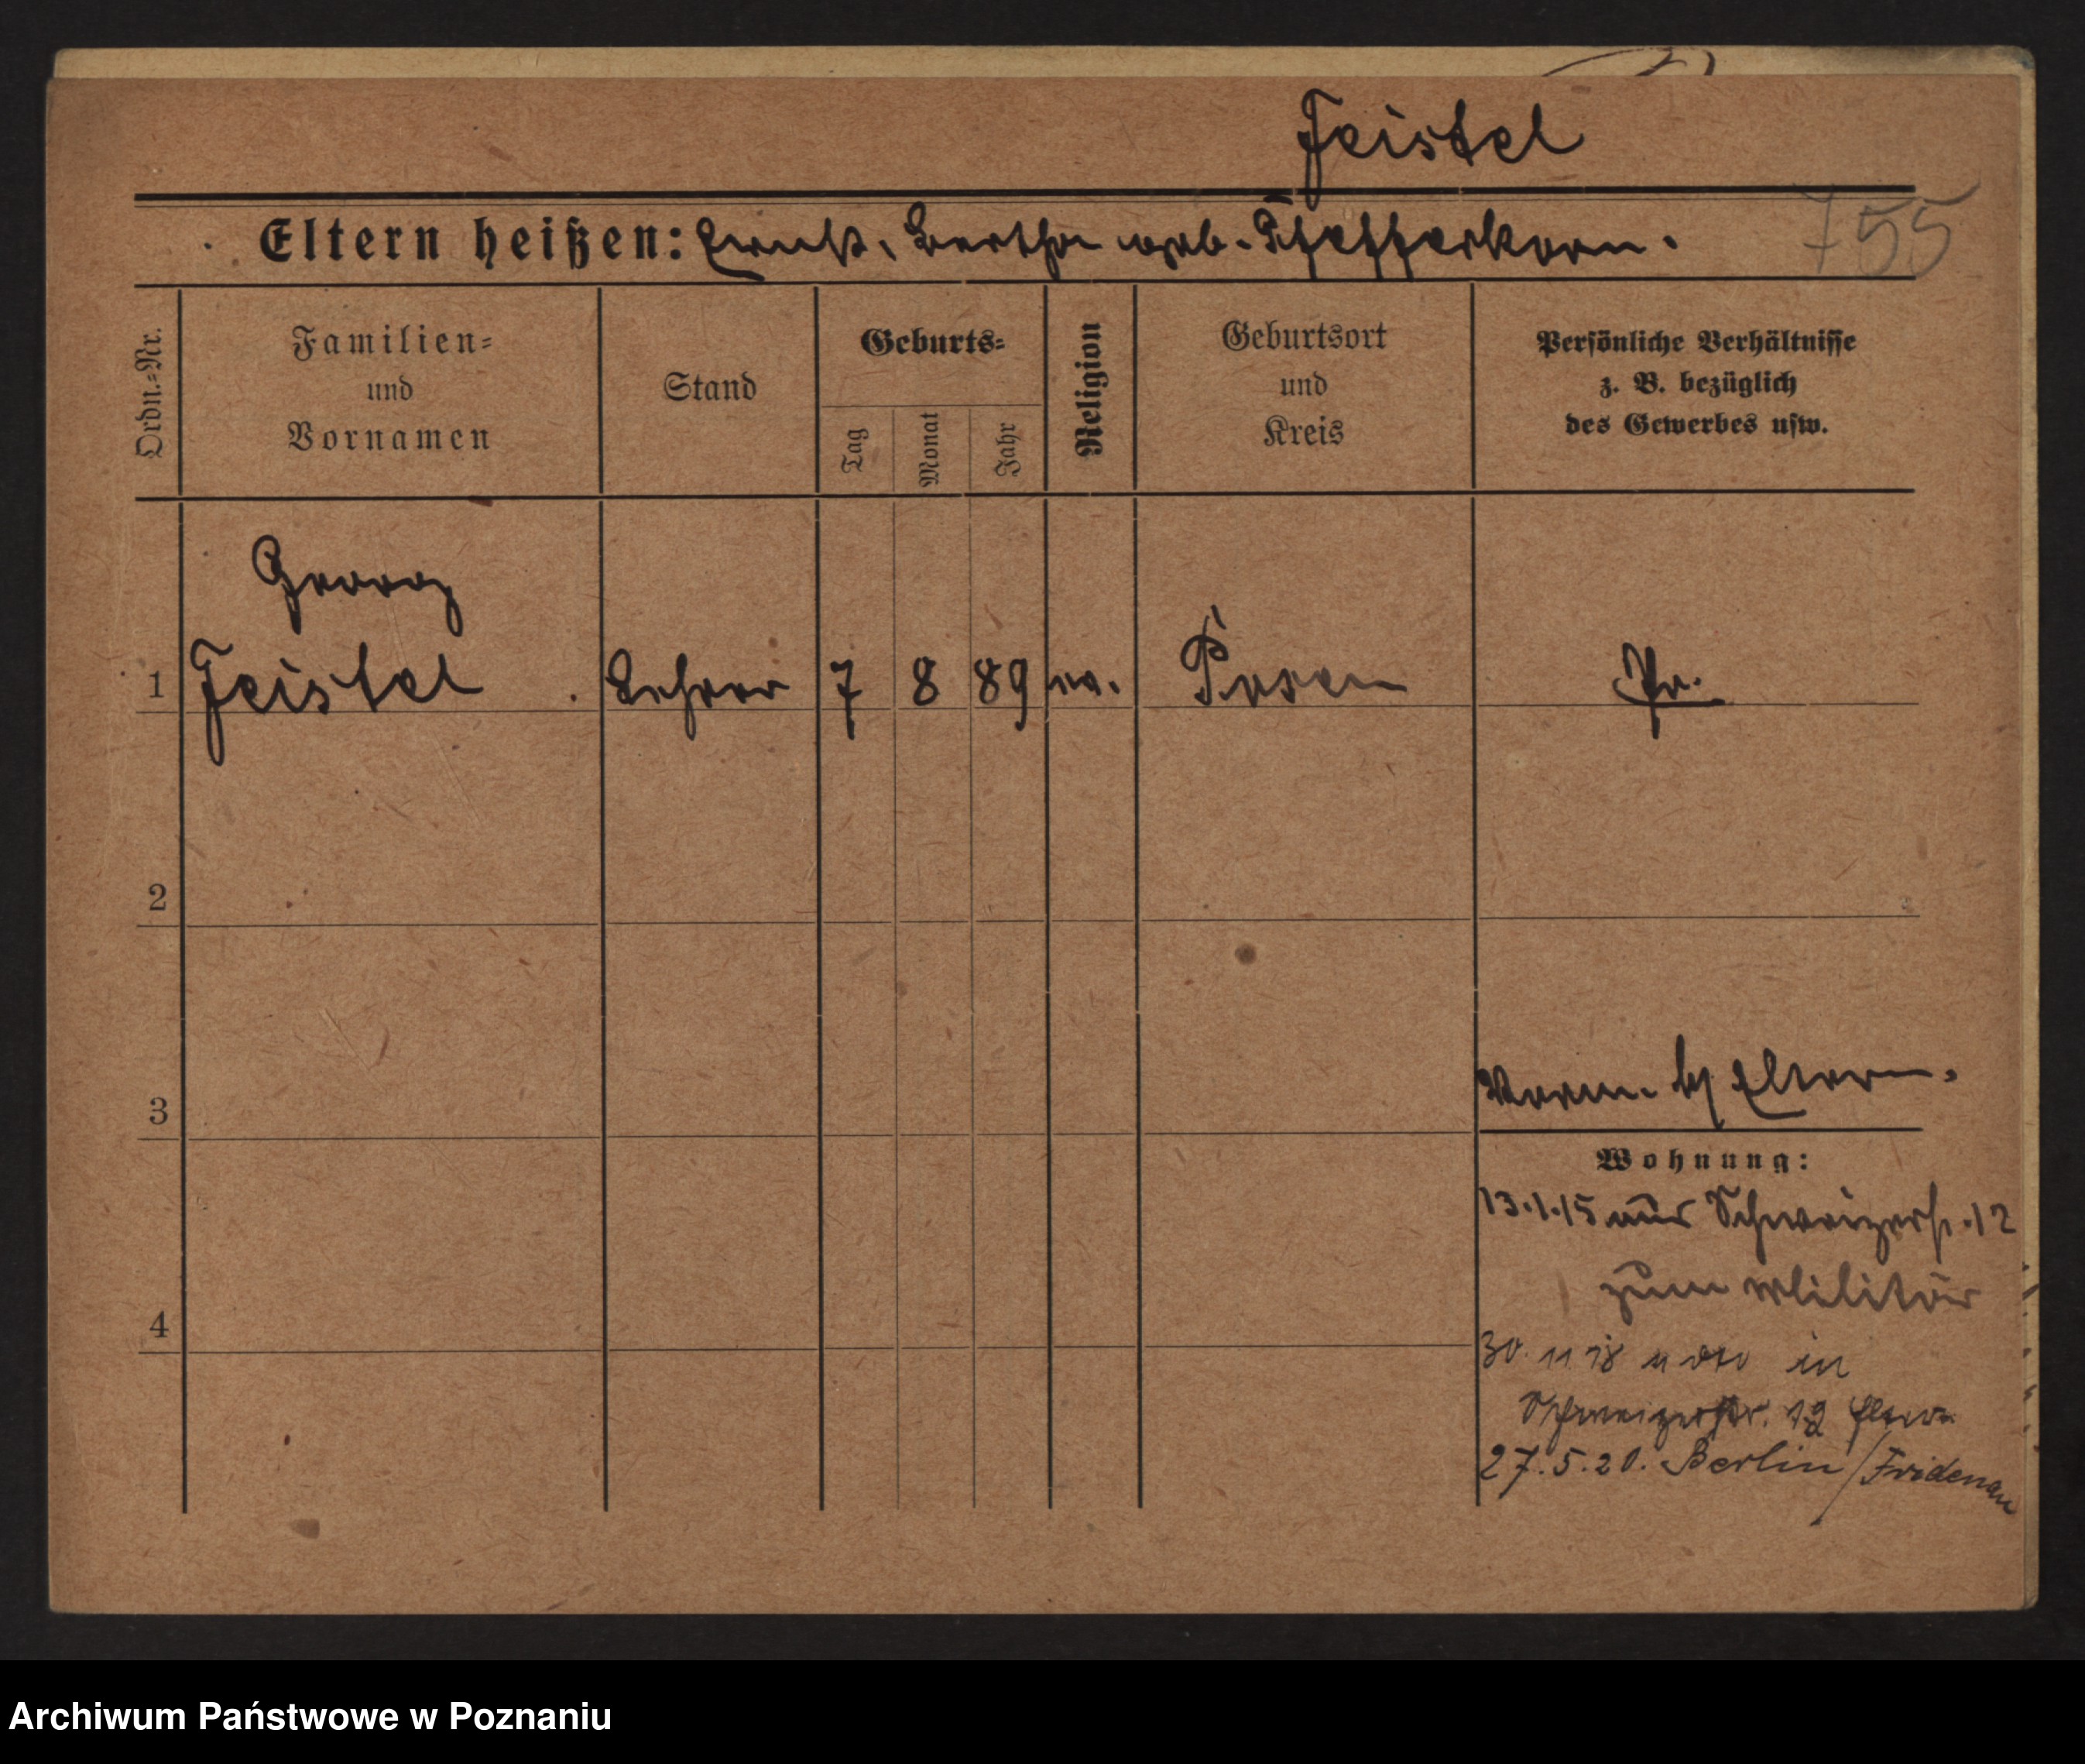 Feistel
755
Eltern heißen: Ernst, Bertha geb. Pfefferkorn.
Ordn.=Nr.
Familien=
und
Vornamen
Stand
Geburts=
Tag
Monat
Jahr
Religion
Geburtsort
und
Kreis
Persönliche Verhältnisse
z. B. bezüglich
des Gewerbes usw.
Georg
1 Feistel Lehrer 7 8 89 ev. Posen Pr.
2
3
Eltern.
Wohnung:
13.1.15 aus Schweizerstr. 12
zum Militär
4
30. 11 18 in
Schweizerstr. 12
27.5.20. Berlin/Fridenau
Archiwum Państwowe w Poznaniu